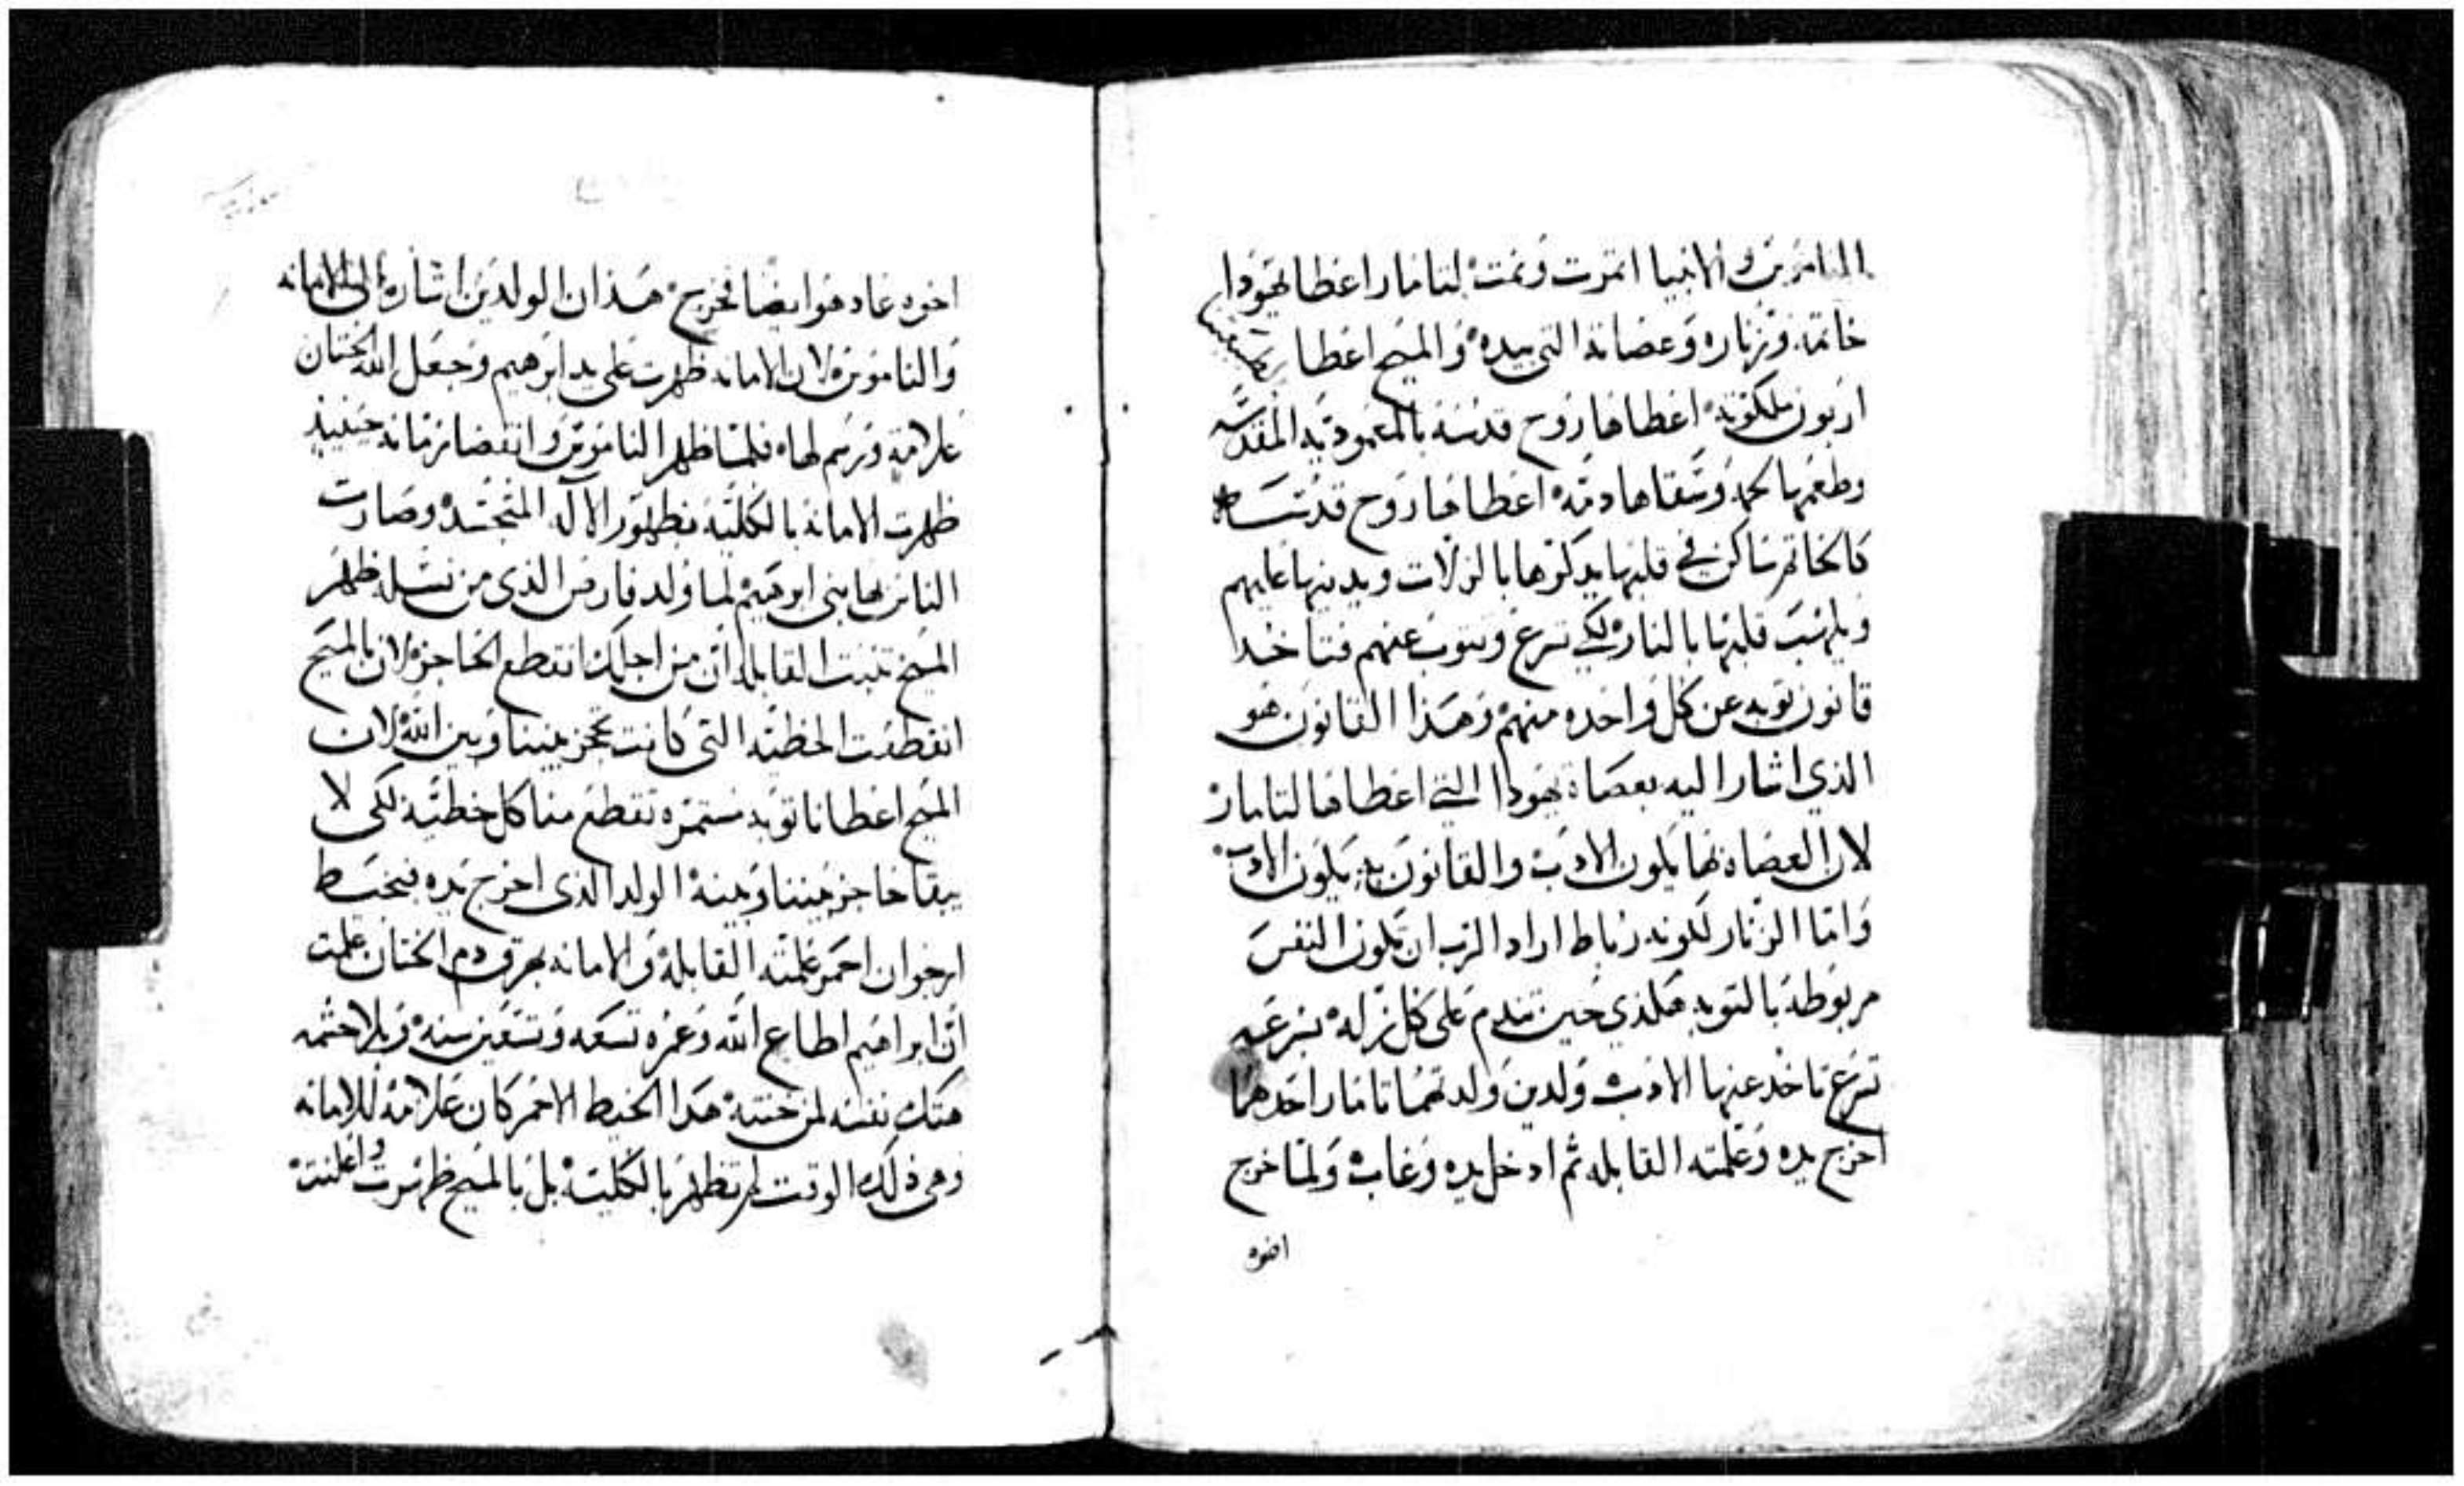 الناموس والانبيا اثمرت ونمت لتامار اعطا يهودا
خاتمه وزناره وعصاته التي بيده والمسيح اعطا
اربون ملكوته اعطاها روح قدسه بالمعموديه المقدسه
وطعمها لحمه وسقاها دمه اعطاها روح قدسه
كالخاتم ساكن في قلبها يدكرها بالزلات ويدينها عليهم
ويلهب قلبها بالنار لكي ترجع وتتوب عنهم فتاخد
قانون توبه عن كل واحده منهم وهذا القانون هو
الذي اشار اليه بعصاة يهودا التي اعطاها لتامار
لان العصاه بها يكون الادب والقانون به يكون الادب
واما الزنار لكونه رباط اراد الرب ان تكون النفس
مربوطه بالتوبه هكذي حين تندم على كل زله بسرعه
ترجع تاخد عنها الادب ولدين ولدتهما تامار احدهما
اخرج يده وعلمته القابله ثم ادخل يده وغاب ولما خرج
اخوه
اخوه عاد هو ايضا فخرج هذان الولدين اشاره الى الامانه
والناموس لان الامانه ظهرت على يد ابرهيم وجعل الله الختان
علامة ورسم لها فلما ظهر الناموس وانقضا زمانه حينيذ
ظهرت الامانه بالكليه بظهور الاله المتجسد وصارت
الناس بها بني ابرهيم لما ولد فارص الذي من نسله ظهر
المسيح تنبت القابله ان من اجلك انقطع الحاجز لان بالمسيح
انقطعت الخطيه التي كانت تحجز بيننا وبين الله لان
المسيح اعطانا توبه مستمره تقطع منا كل خطية لكى لا
يبقا حاجز بيننا وبينه الولد الذى اخرج يده بخيط
ارجوان احمر علمته القابله والامانه بهرق دم الختان علمت
ان ابراهيم اطاع الله وعمره تسعه وتسعين سنه وبلا حشمه
هتك نفسه لمن ختنه هدا الخيط الاحمر كان علامة للامانه
وفى ذلك الوقت لم تظهر بالكليه بل بالمسيح ظهرت واعلنت